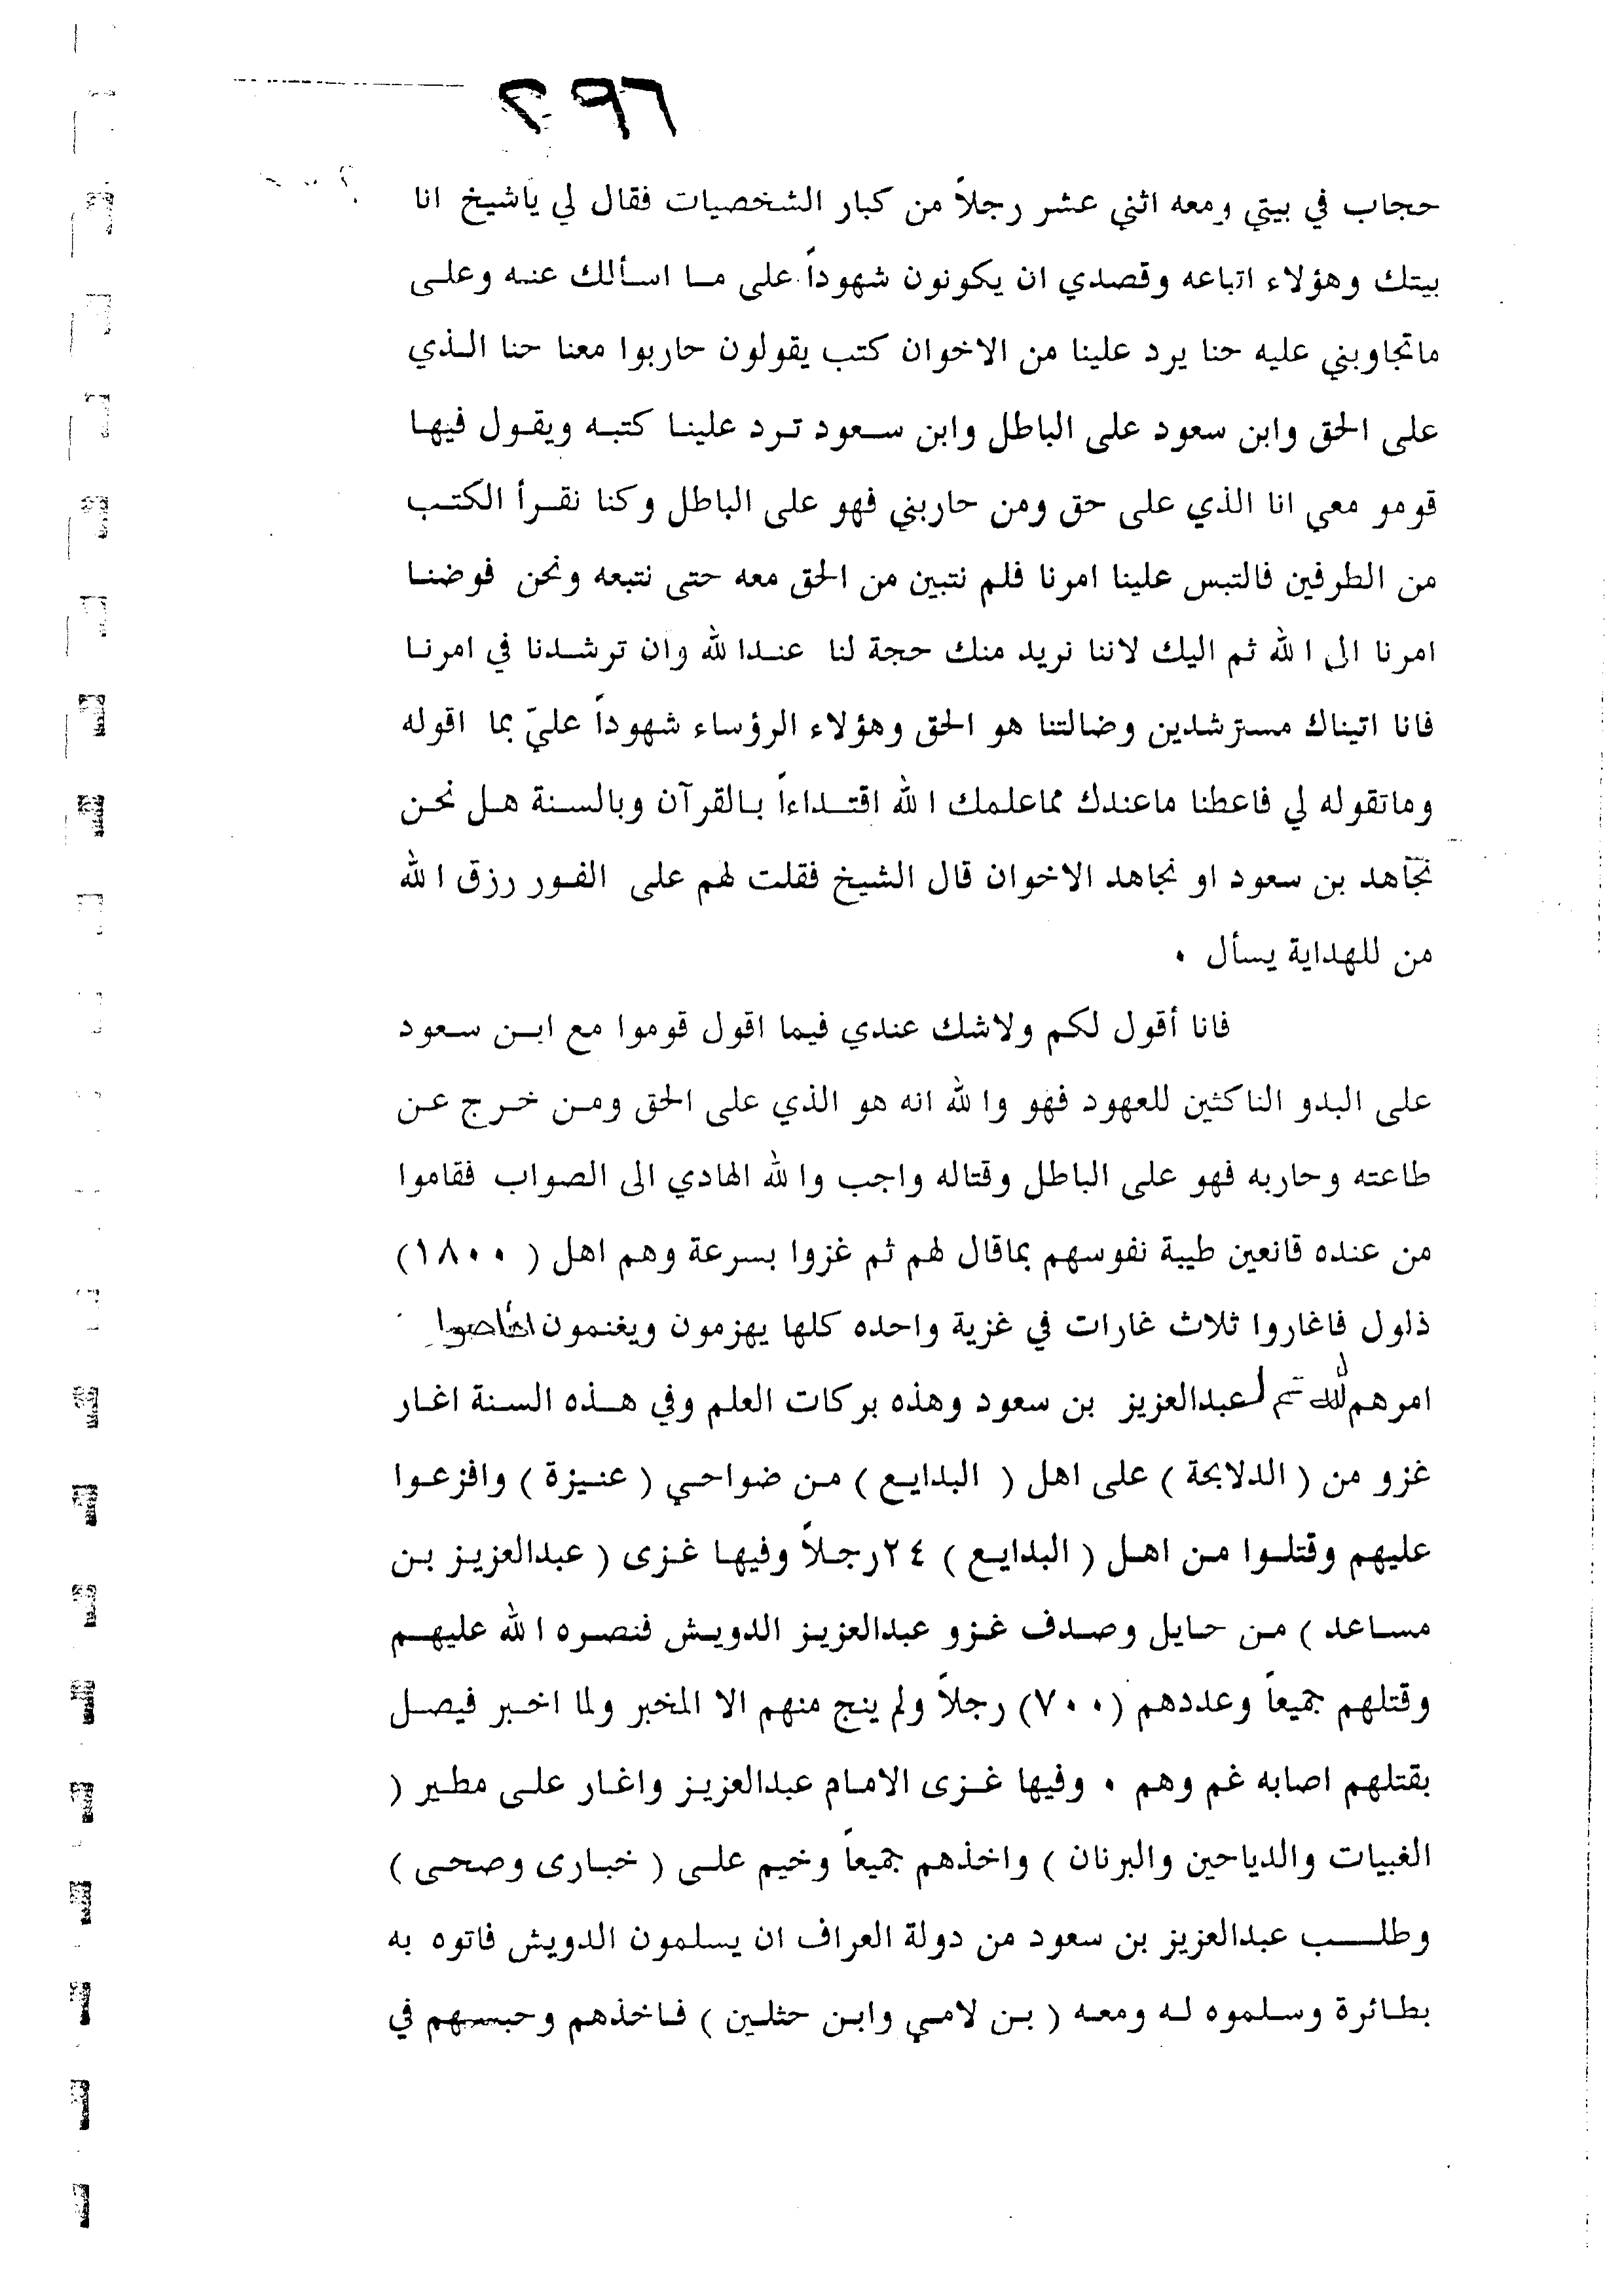 ٢٩٦
حجاب في بيتي ومعه اثني عشر رجلاً من كبار الشخصيات فقال لي ياشيخ انا
بيتك وهؤلاء اتباعه وقصدي ان يكونون شهوداً على ما اسألك عنه وعلى
ماتجاوبني عليه حنا يرد علينا من الاخوان كتب يقولون حاربوا معنا حنا الذي
على الحق وابن سعود على الباطل وابن سعود ترد علينا كتبه ويقول فيها
قومو معي انا الذي على حق ومن حاربني فهو على الباطل وكنا نقرأ الكتب
من الطرفين فالتبس علينا امرنا فلم نتبين من الحق معه حتى نتبعه ونحن فوضنا
امرنا الى الله ثم اليك لاننا نريد منك حجة لنا عندالله وان ترشدنا في امرنا
فانا اتيناك مسترشدين وضالتنا هو الحق وهؤلاء الرؤساء شهوداً عليّ بما اقوله
وماتقوله لي فاعطنا ماعندك مماعلمك الله اقتداءاً بالقرآن وبالسنة هل نحن
نجاهد بن سعود او نجاهد الاخوان قال الشيخ فقلت لهم على الفور رزق الله
من للهداية يسأل ٠
فانا أقول لكم ولاشك عندي فيما اقول قوموا مع ابن سعود
على البدو الناكثين للعهود فهو والله انه هو الذي على الحق ومن خرج عن
طاعته وحاربه فهو على الباطل وقتاله واجب والله الهادي الى الصواب فقاموا
من عنده قانعين طيبة نفوسهم بماقال لهم ثم غزوا بسرعة وهم اهل ( ١٨٠٠)
ذلول فاغاروا ثلاث غارات في غزية واحده كلها يهزمون ويغنمون اخلصوا
امرهم لله ثم لعبدالعزيز بن سعود وهذه بركات العلم وفي هذه السنة اغار
غزو من ( الدلابحة ) على اهل ( البدايع ) من ضواحي ( عنيزة ) وافزعوا
عليهم وقتلوا من اهل ( البدايع ) ٢٤رجلاً وفيها غزى ( عبدالعزيز بن
مساعد ) من حايل وصدف غزو عبدالعزيز الدويش فنصره الله عليهم
وقتلهم جميعاً وعددهم (٧٠٠) رجلاً ولم ينج منهم الا المخبر ولما اخبر فيصل
بقتلهم اصابه غم وهم ٠ وفيها غزى الامام عبدالعزيز واغار على مطير (
الغبيات والدياحين والبرنان ) واخذهم جميعاً وخيم على ( خبارى وصحى )
وطلب عبدالعزيز بن سعود من دولة العراف ان يسلمون الدويش فاتوه به
بطائرة وسلموه له ومعه ( بن لامي وابن حثلين ) فاخذهم وحبسهم في